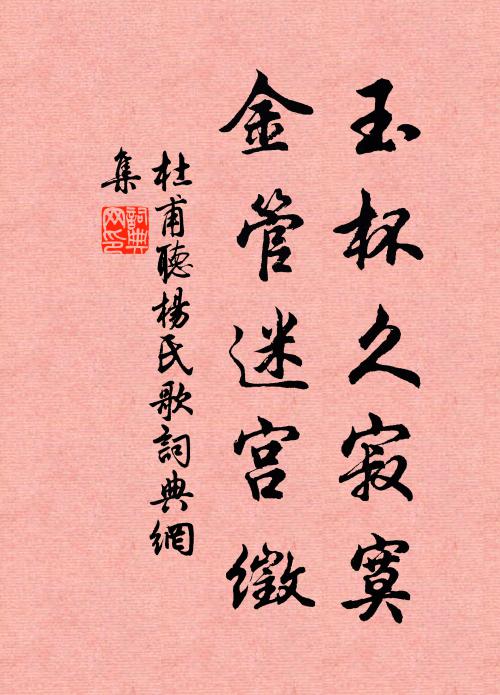 玉杯久寂寞
金管迷宮徵
杜甫聽楊氏歌詞典網
集
詞典
網印